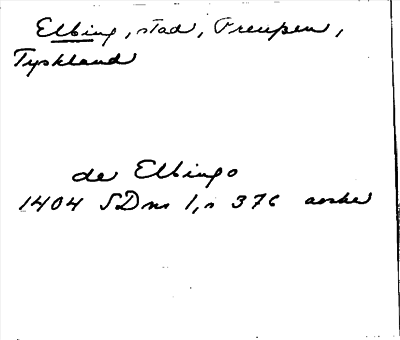 Elbing, stad, Preussen,
Tyskland
de Elbingo
1404 SDns 1, s 376 avskr